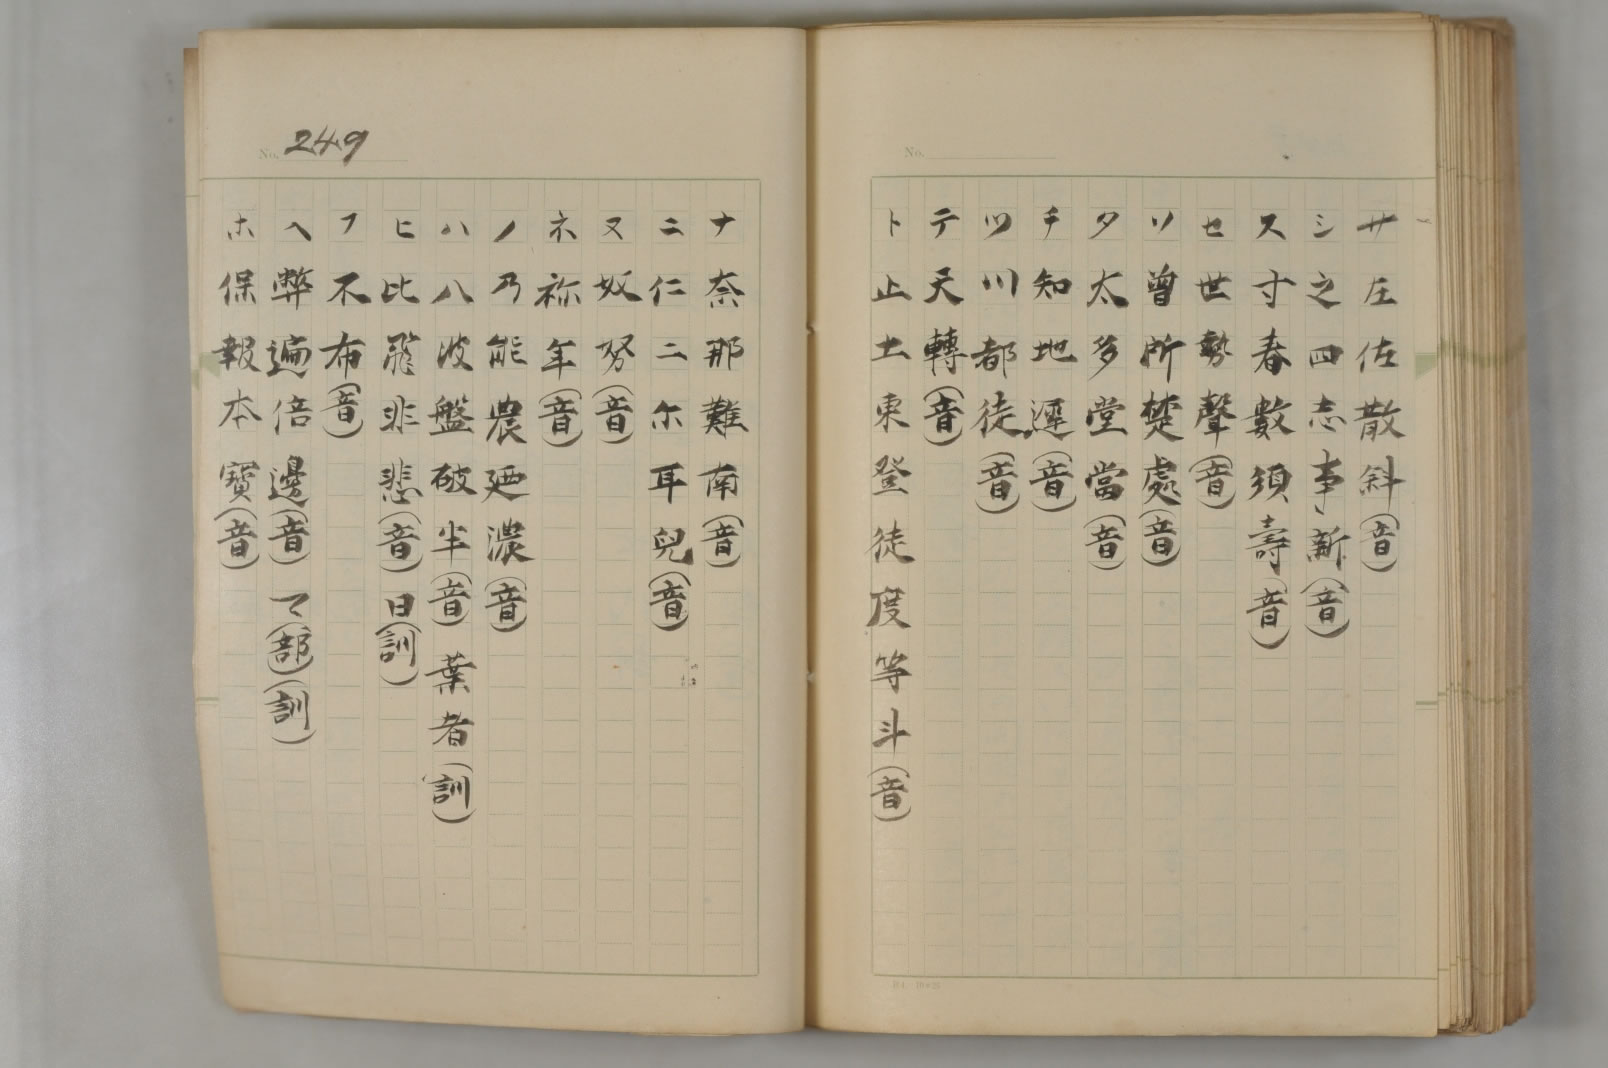 サ 左 佐 散 斜 (音)
シ 之 四 志 事 新 (音)
ス 寸 春 數 須 壽 (音)
セ 世 勢 聲 (音)
ソ 曾 所 楚 處 (音)
タ 太 多 堂 當 (音)
チ 知 地 遲 (音)
ツ 川 都 徒 (音)
テ 天 轉 (音)
ト 止 土 東 登 徒 度 等 斗 (音)
No. 249
ナ 奈 那 難 南 (音)
ニ 仁 二 尓 耳 兒 (音)
ヌ 奴 努 (音)
ネ 祢 年 (音)
ノ 乃 能 農 廼 濃 (音)
ハ 八 波 盤 破 半 (音) 葉 者 (訓)
ヒ 比 飛 非 悲 (音) 日 (訓)
フ 不 布 (音)
ヘ 弊 遍 倍 邊 (音) マ (部) (訓)
ホ 保 報 本 寶 (音)